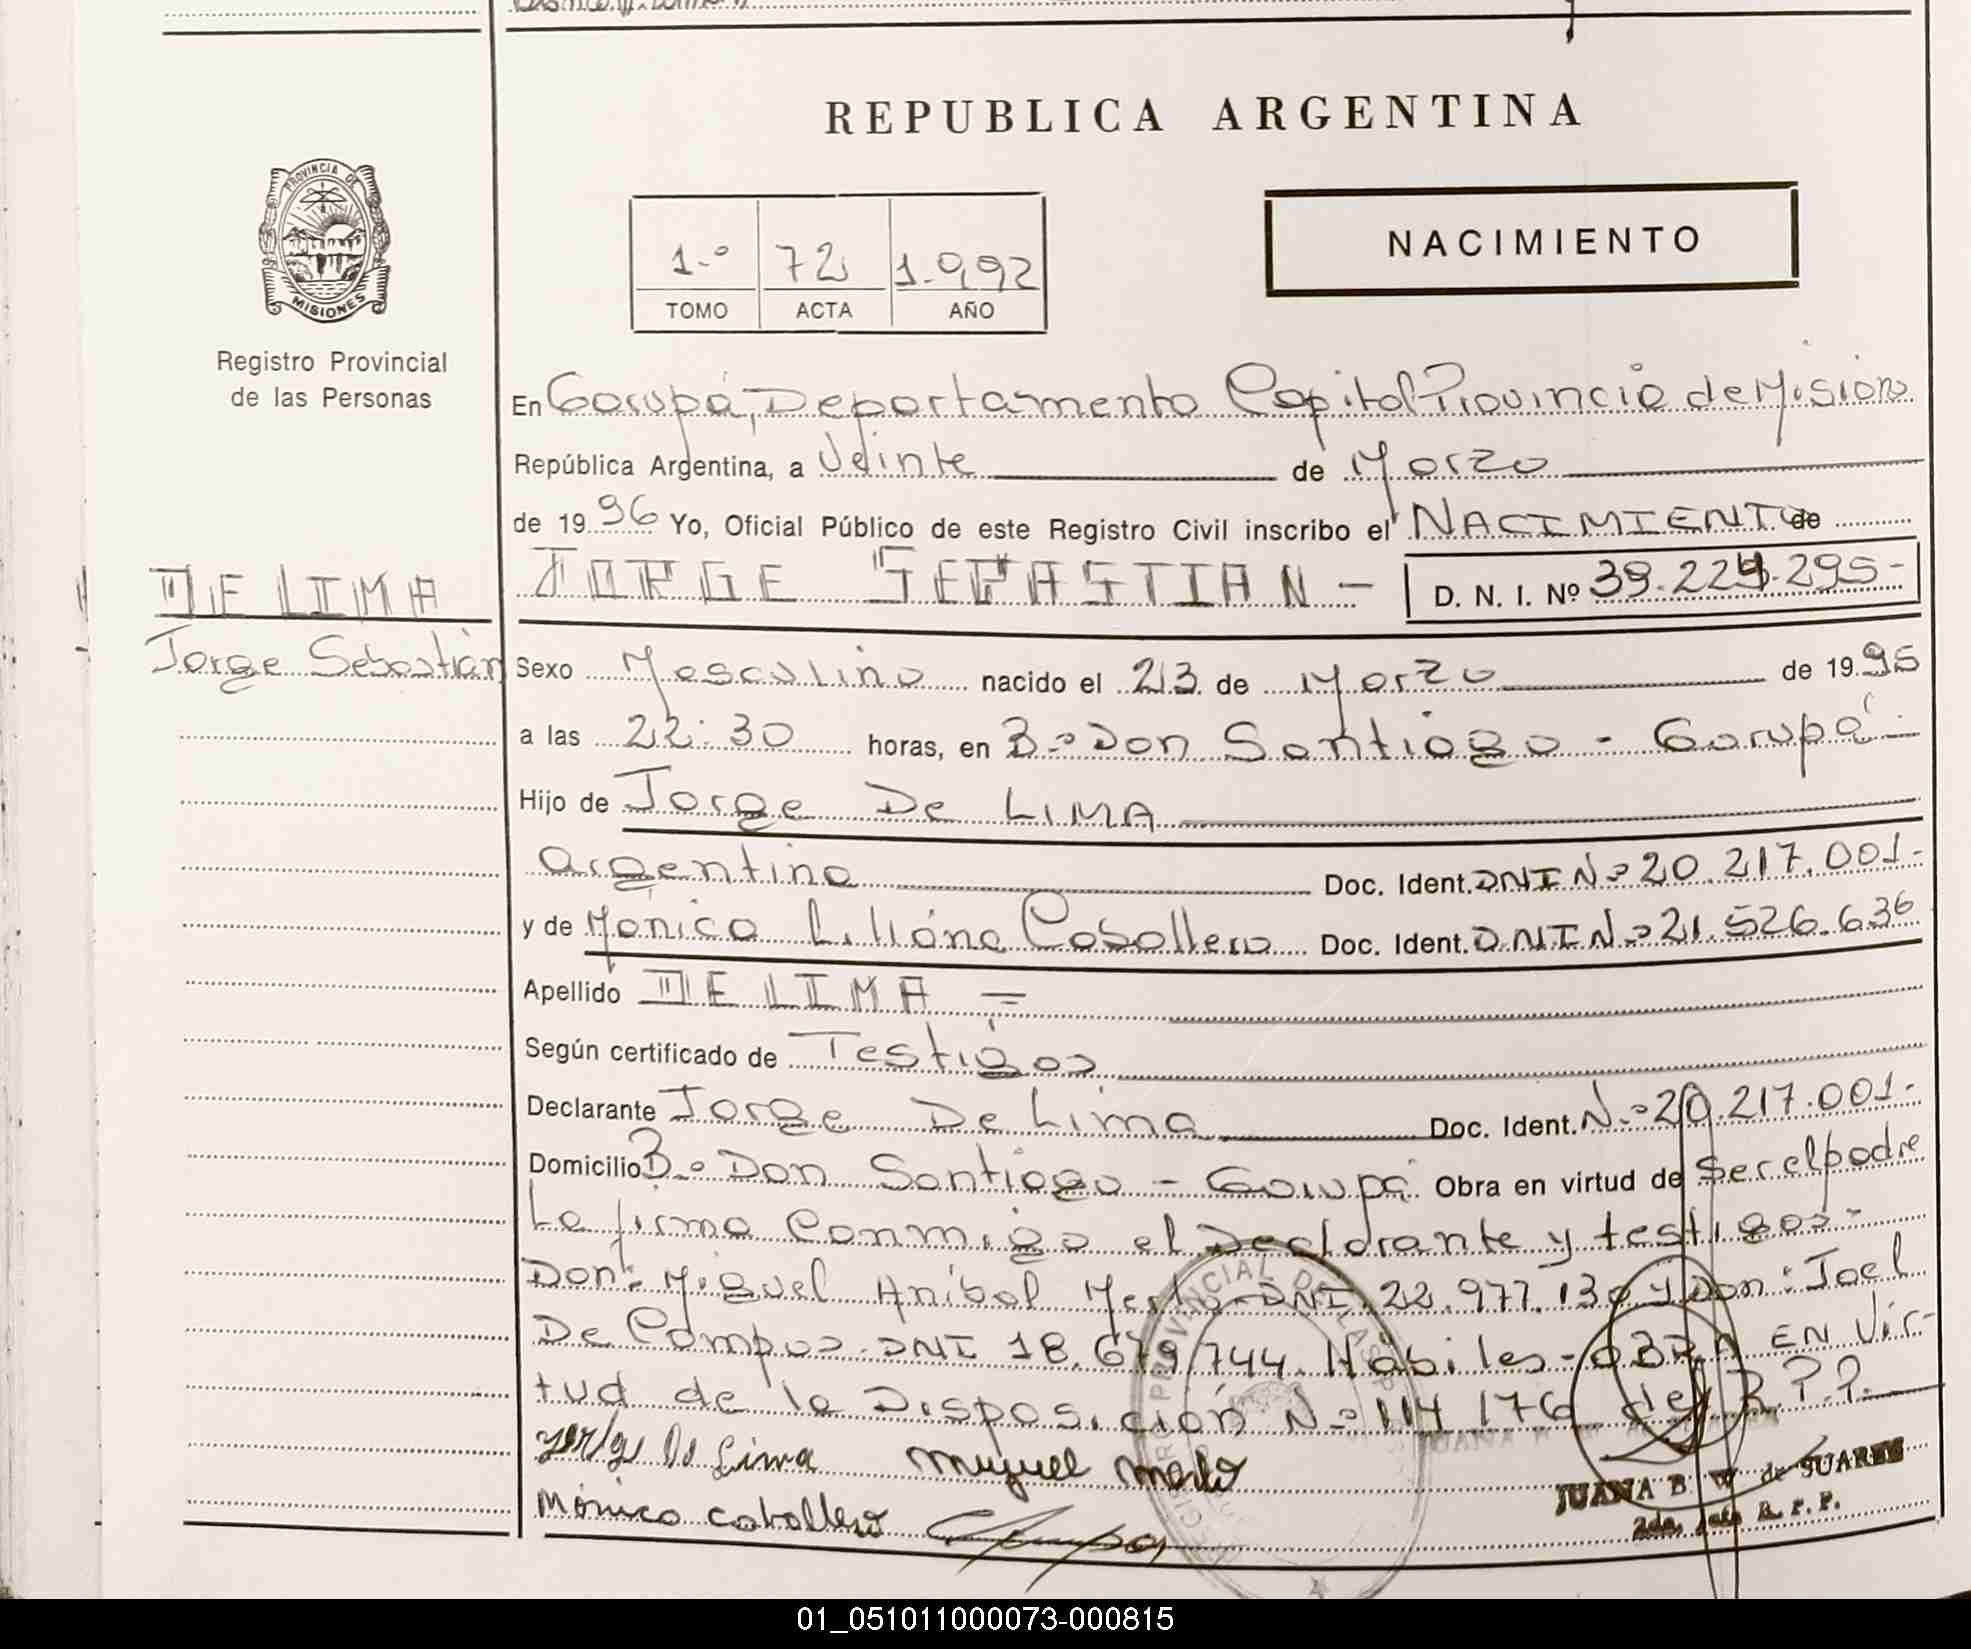 REPUBLICA ARGENTINA
PROVINCIA DE
MISIONES
Registro Provincial
de las Personas
NACIMIENTO
1.º 72 1.992
TOMO ACTA AÑO
En Garupá, Departamento Capital Provincia de Mision
República Argentina, a Veinte de Marzo
de 1996 Yo, Oficial Público de este Registro Civil inscribo el NACIMIENTO de
DE LIMA
Jorge Sebastián
JORGE SEBASTIAN - D. N. I. Nº 39.224.295-
Sexo Masculino nacido el 23 de Marzo de 1995
a las 22:30 horas, en B.º Don Santiago - Garupá -
Hijo de Jorge De LIMA
argentina Doc. Ident. DNI Nº 20.217.001-
y de Mónica Liliána Caballero Doc. Ident. DNI Nº 21.526.636
Apellido DE LIMA =
Según certificado de Testigos
Declarante Jorge De Lima Doc. Ident. N.º 20.217.001-
Domicilio B.º Don Santiago - Garupá Obra en virtud de Ser el padre
La firma Conmigo el Declarante y testigos-
Don: Miguel Aníbal Merlo-DNI. 22.977.130 y Don: Joel
De Campos. DNI 18.679.744. Hábiles-OBRA EN Vir-
tud de la Disposición Nº 114/76 del R.P.P.
Jorge De Lima Miguel Merlo
Mónica Caballero
JUANA B. W de SUAREZ
2da. Jefe R. P. P.
01_051011000073-000815